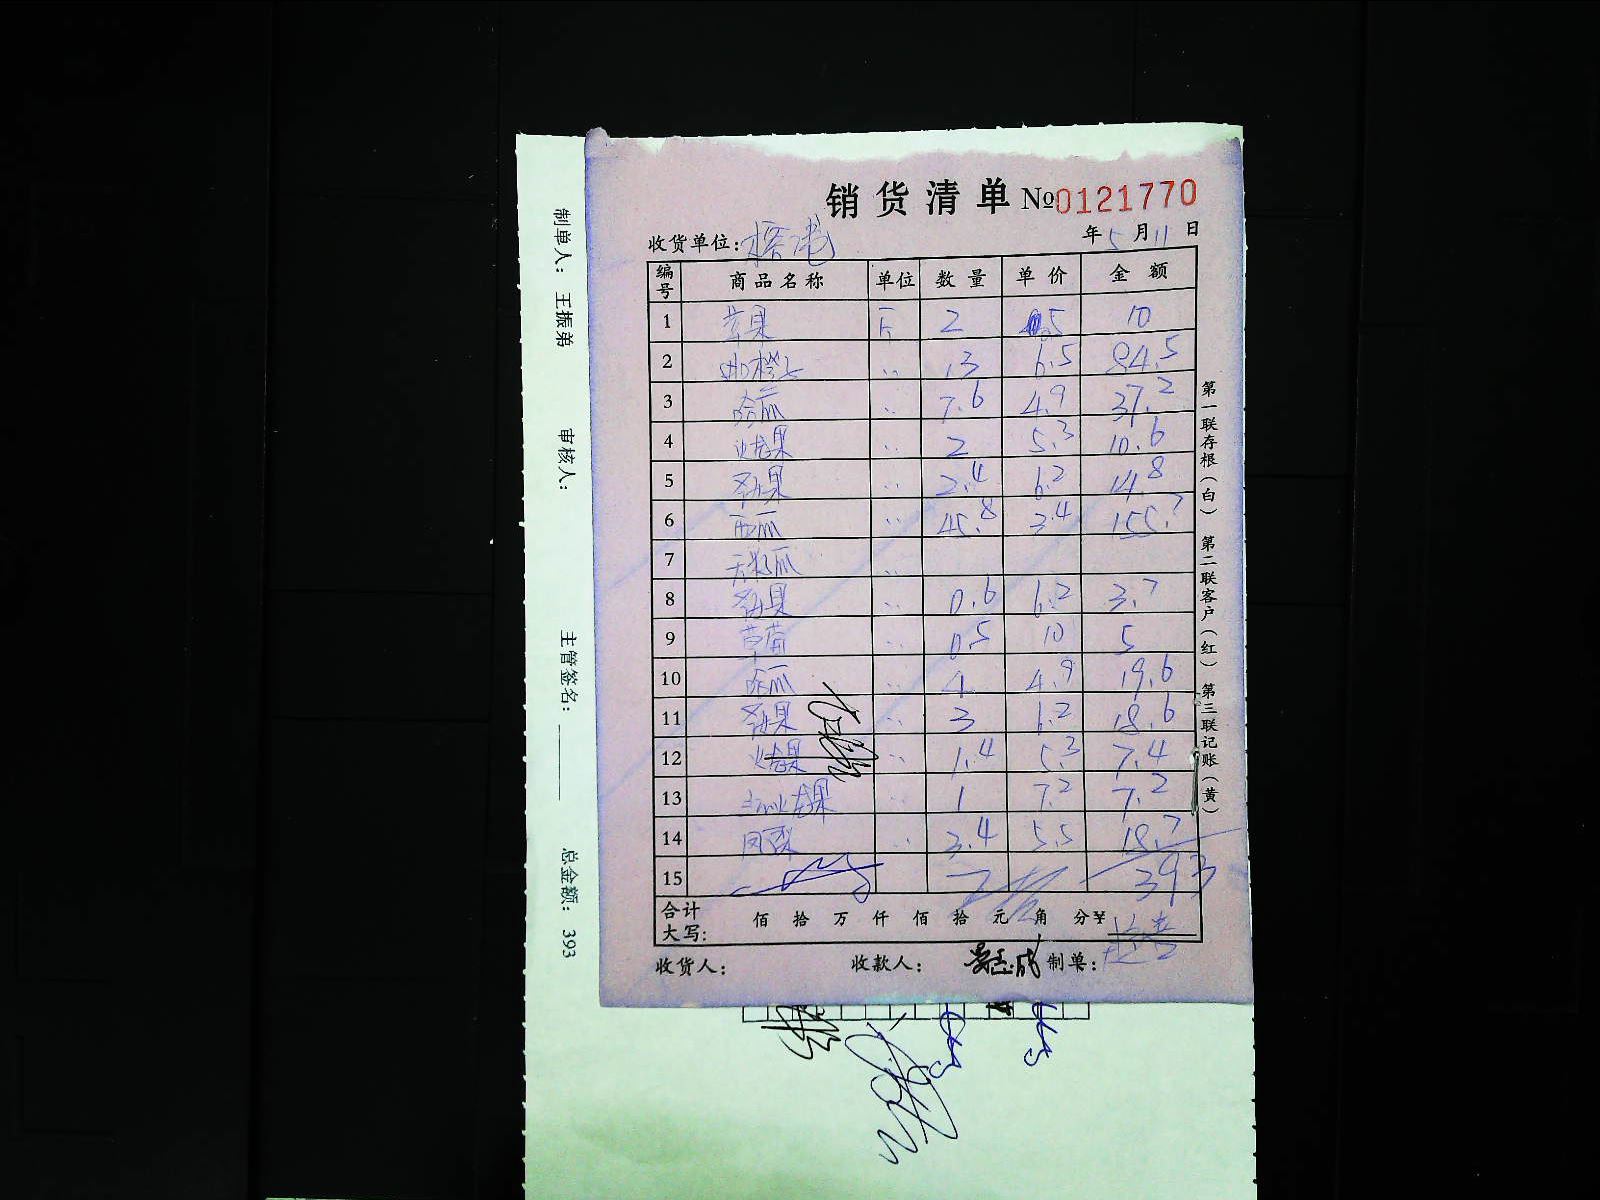 销货清单 №0121770
收货单位: 年5月11日
编号 商品名称 单位 数量 单价 金额
1 苹果 斤 2 5 10
2 .. 13 6.5 84.5
3 哈瓜 .. 7.6 4.9 37.2
4 火龙果 .. 2 5.3 10.6
5 圣女果 .. 2.4 6.2 14.8
6 西瓜 .. 45.8 3.4 155.7
7 ..
8 圣女果 .. 0.6 6.2 3.7
9 草莓 .. 0.5 10 5
10 哈瓜 .. 4 4.9 19.6
11 圣女果 .. 3 6.2 18.6
12 火龙果 .. 1.4 5.3 7.4
13 红心火龙果 .. 1 7.2 7.2
14 凤梨 .. 3.4 5.5 18.7
15 393
合计大写: 佰 拾 万 仟 佰 拾 元 角 分¥
收货人: 收款人: 制单:
第一联存根(白) 第二联客户(红) 第三联记账(黄)
制单人: 王振弟 审核人: 主管签名: 总金额: 393